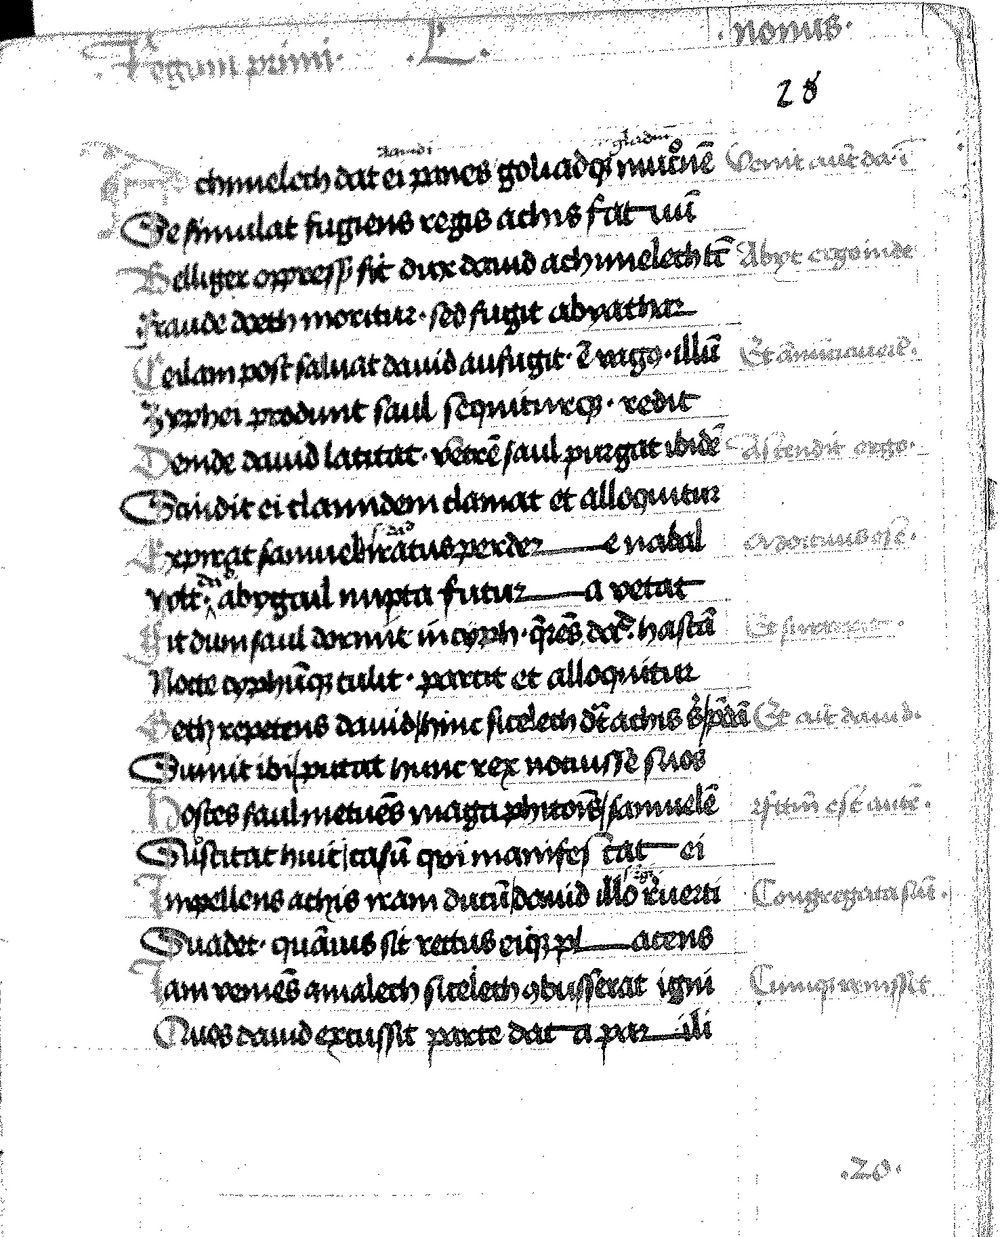 Regum primi. L. .nonus.
28
dauid gladium
Achimelech dat ei panes goliadqȝ mucrōnē Venit aūt da.ī
Se simulat fugiens regis achis fat uū
Belliger oppressꝰ fit dux dauid achimelech tm̄ Abyt ergo inde
Fraude doeth moritur. sed fugit abyathar
Ceilam post saluat dauid aufugit. ē vago. illū Et ānūciauerūt.
Zyphei produnt saul sequiturqȝ. redit
Deinde dauid latitat. vētrē saul purgat ibidē Ascendit ergo.
Scindit ei clamidem clamat et alloquitur
Expirat samuel iratus perder e nabal Mortuus est.
volt. abygail nupta futur a vetat
Fit dum saul dormit in cyph. hastā Et surrexit.
Nocte cyphūqȝ tulit. partit et alloquitur
Geth repetens dauid hinc sicelech dt̄ achis Et ait dauid.
Sumit ibi putat hunc rex nouisse suos
Hostes saul metuēs maga phitoīs samuelē est autē.
Suscitat huic casū qui manifes tat ei
Impellens achis iram ducū dauid illo reuerti Congregata sūt.
Suadet. quāuis sit rectus eiqȝ pl acens
Iam veniēs amalech sicelech cōbusserat igni Cumqȝ venisset
Quos dauid excussit parte dat a par ili
.20.